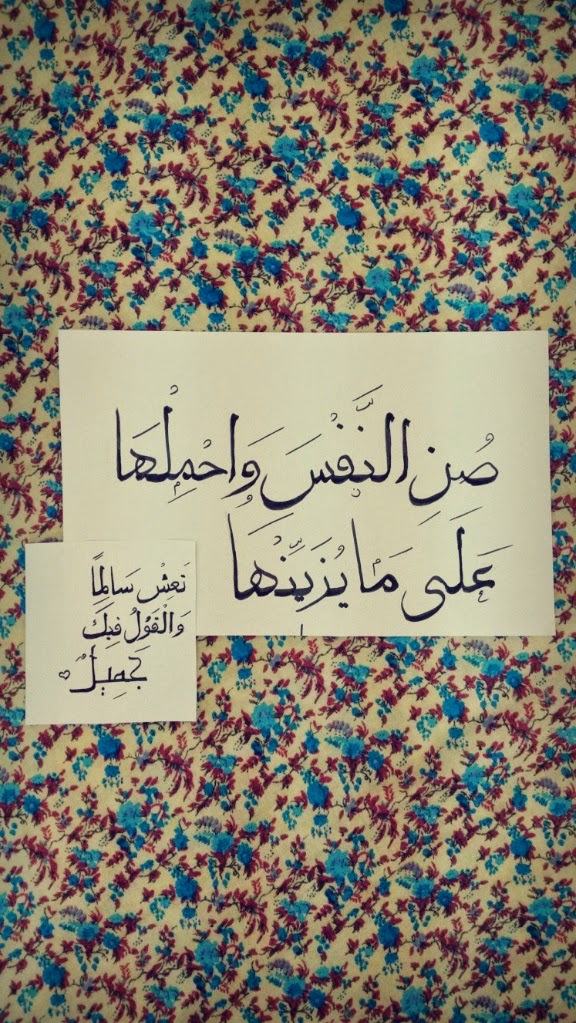 صُنِ النَّفْسَ وَاحْمِلْهَا
عَلَى مَا يُزَيِّنُهَا
تَعِشْ سَالِمًا
وَالْقَوْلُ فِيكَ
جَمِيلٌ